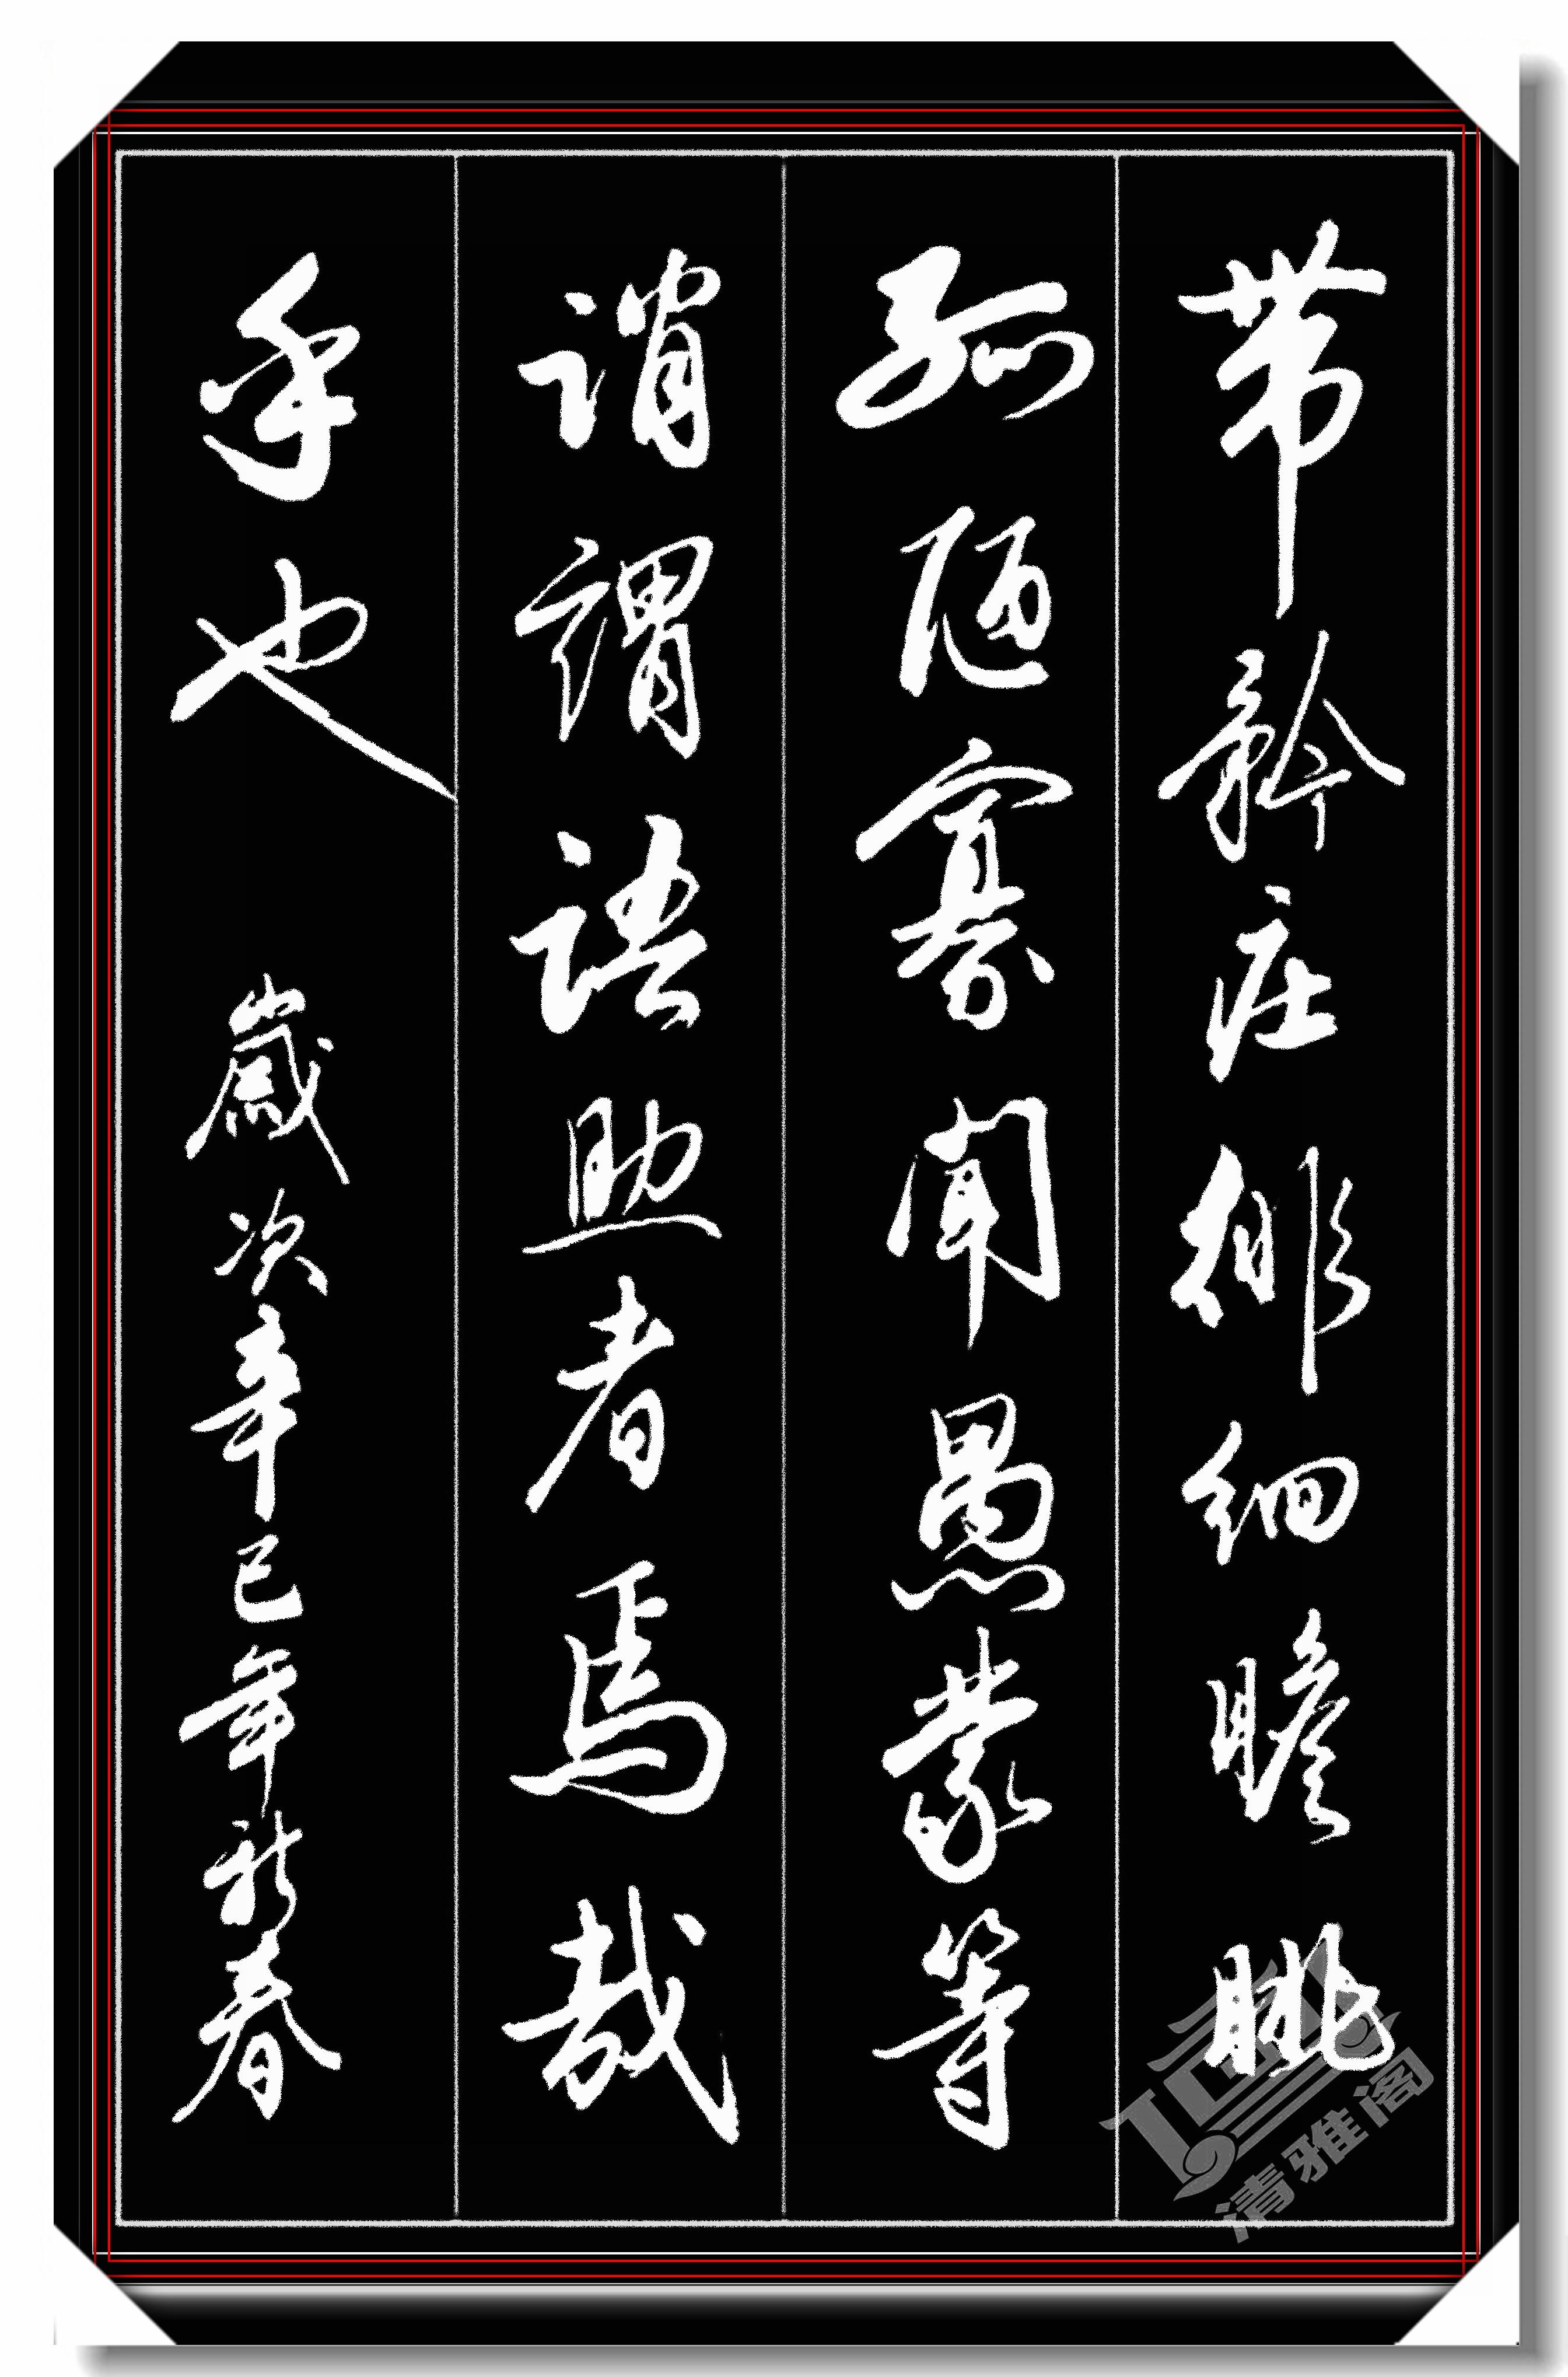 带矜庄徘徊瞻眺
孤陋寡闻愚蒙等
诮謂语助者焉哉
乎也 歲次辛巳年新春
清雅阁